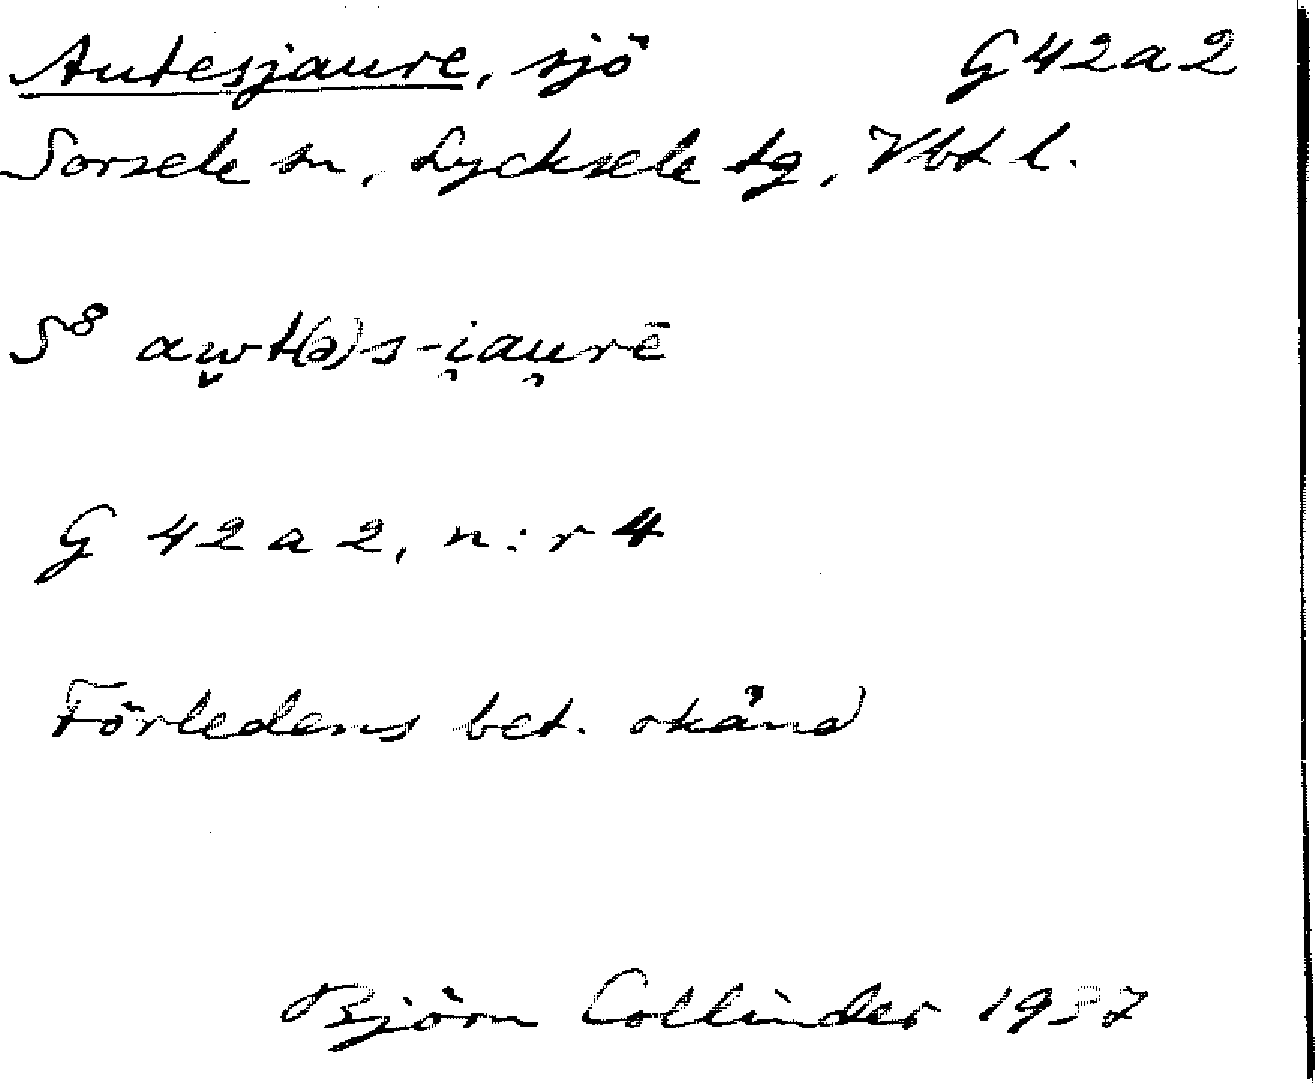 Autesjaure, sjö G42a2
Sorsele sn, Lycksele tg, Vbt l.
S⁸ aw̬t(ə)s-i̯au̯rē
G 42 a 2, n:r 4
Förledens bet. okänd
Björn Collinder 1937